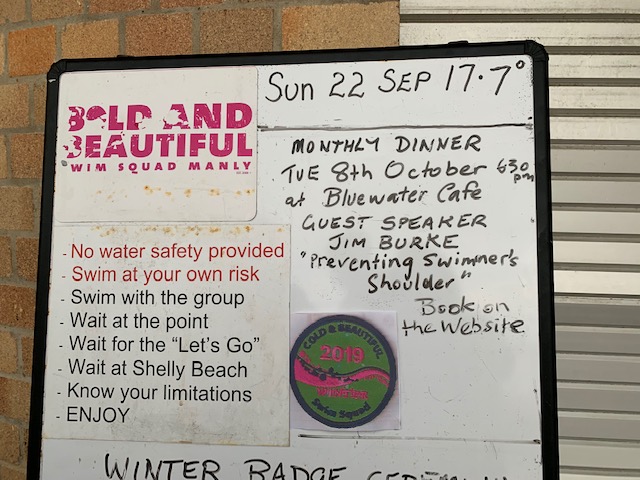 BOLD AND
BEAUTIFUL
SWIM SQUAD MANLY
Sun 22 SEP 17.7°
MONTHLY DINNER
TUE 8th October 630 pm
at Bluewater Cafe
GUEST SPEAKER
JIM BURKE
"Preventing Swimmer's
Shoulder"
Book on
the Website
- No water safety provided
- Swim at your own risk
- Swim with the group
- Wait at the point
- Wait for the “Let's Go”
- Wait at Shelly Beach
- Know your limitations
- ENJOY
COLD & BEAUTIFUL
2019
WINTER
Swim Squad
WINTER BADGE